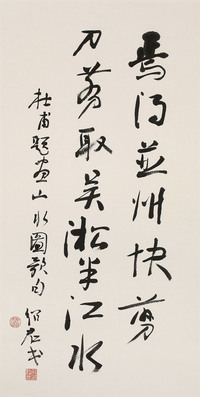 焉得並州快剪
刀剪取吴淞半江水
杜甫題画山水圖歌句